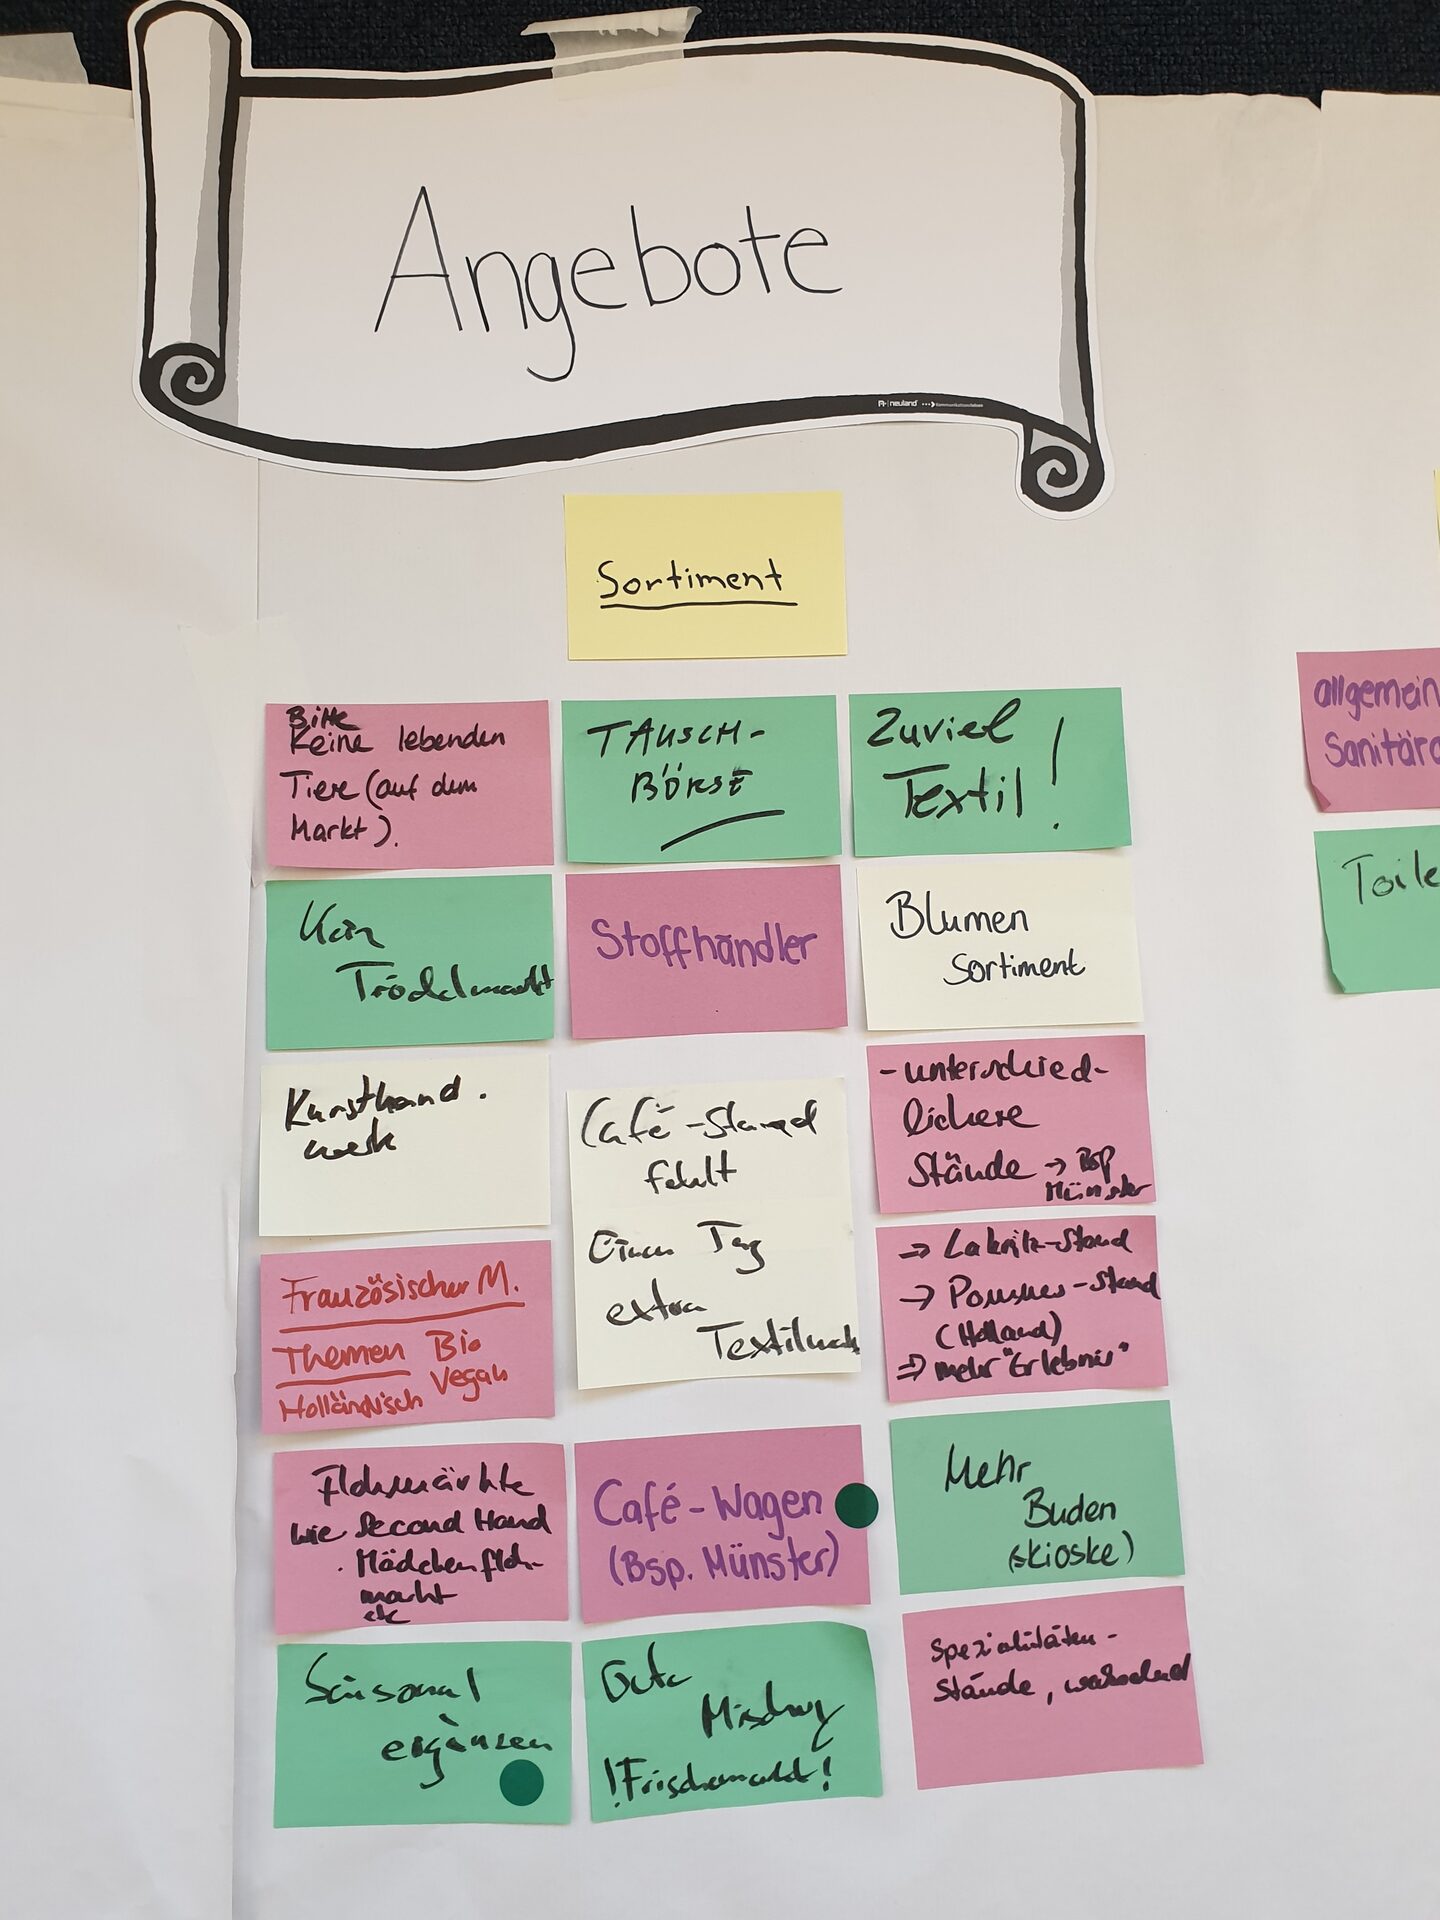 Angebote
neuland
Sortiment
Bitte
Keine lebenden
Tiere (auf dem
Markt).
Kein
Trödelmarkt
Kunsthand.
werk
Französischer M.
Themen Bio
Holländisch Vegan
Flohmärkte
wie Second Hand
. Mädchenfloh-
markt
etc
Saisonal
ergänzen
TAUSCH-
BÖRSE
Stoffhändler
Café-Stand
fehlt
Einen Tag
extra
Café-Wagen
(Bsp. Münster)
Gute
Mischung
!Frischemarkt!
Zuviel
Textil!
Blumen
Sortiment
- unterschied-
lichere
Stände → Bsp
Münster
⇒ Lakritz-Stand
→ Pommes-Stand
(Holland)
⇒ mehr "Erlebnis"
Mehr
Buden
(kioske)
Spezialitäten-
stände, wechselnd
allgemein
Sanitär
Toile